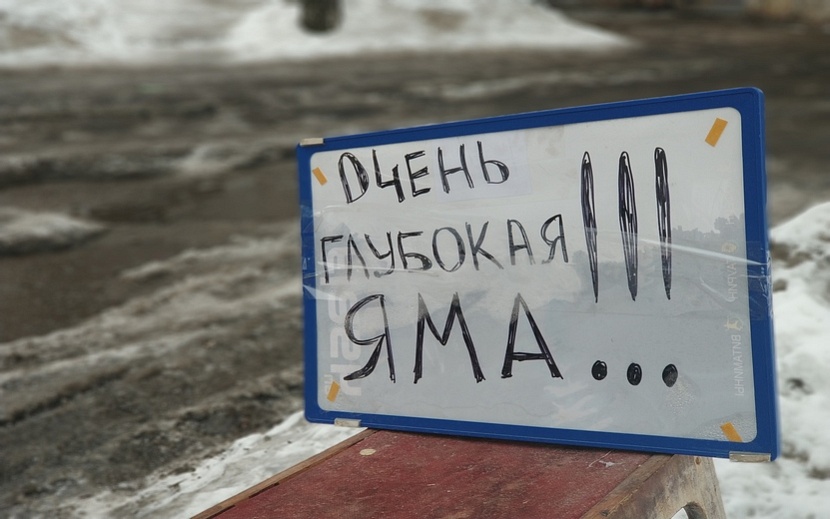 ОЧЕНЬ
ГЛУБОКАЯ
ЯМА...!!!